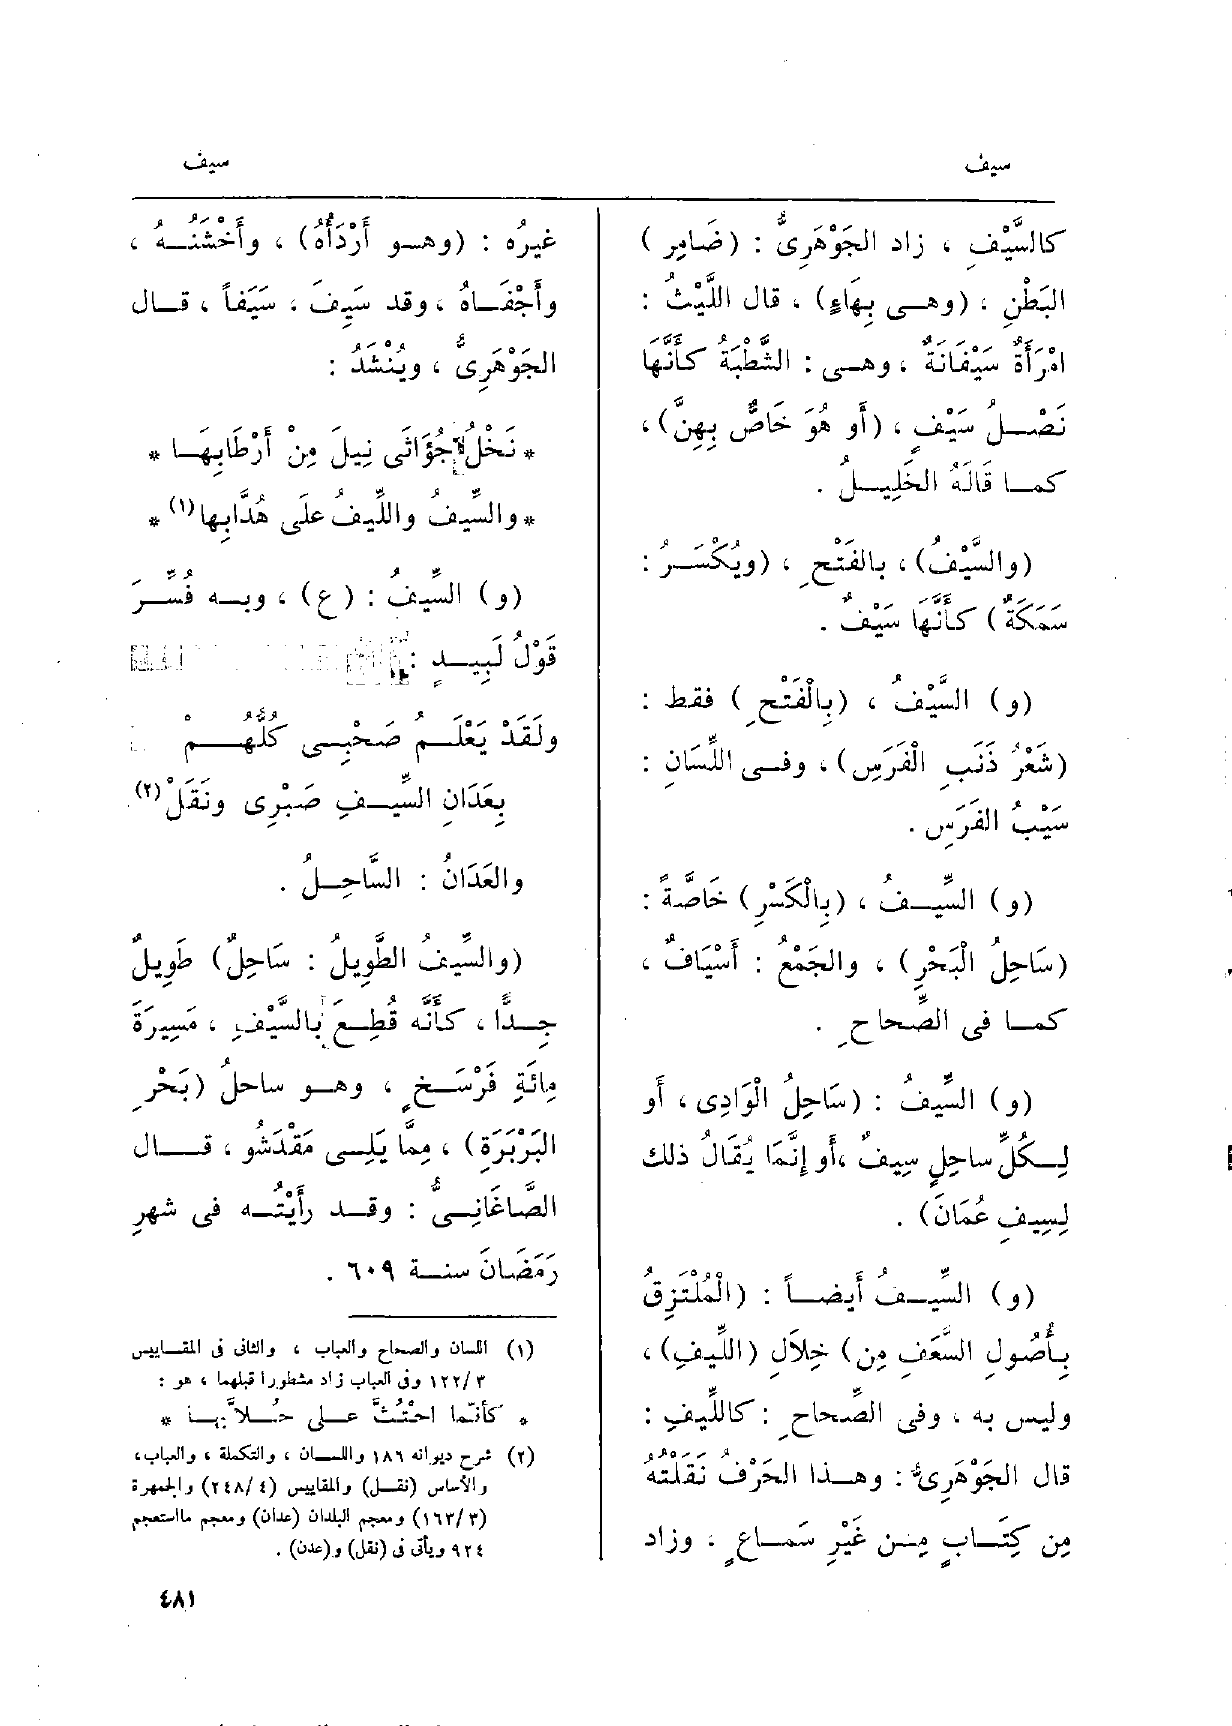 سيف
سيف
كالسَّيْفِ ، زاد الجَوْهَرِىُّ : (ضَامِرِ)
البَطْنِ ، (وهـى بِهَاءٍ) ، قال اللَّيْثُ :
امْرَأَةٌ سَيْفَانَةٌ ، وهـى : الشَّطْبَةُ كَأَنَّهَا
نَصْـلُ سَيْفٍ ، (أَو هُوَ خَاصٌّ بِهِنَّ) ،
كمـا قَالَهُ الخَلِيـلُ .
(والسَّيْفُ) ، بالفَتْحِ ، (ويُكْسَـرُ :
سَمَكَةٌ) كأَنَّهَا سَيْفٌ .
(و) السَّيْفُ ، (بِالْفَتْحِ) فقط :
(شَعْرُ ذَنَبِ الْفَرَسِ) ، وفـى اللِّسَانِ :
سَيْبُ الفَرَسِ .
(و) السِّيـفُ ، (بِالْكَسْرِ) خَاصَّةً :
(سَاحِلُ الْبَحْرِ) ، والجَمْعُ : أَسْيَافٌ ،
كمـا فى الصِّحاحِ .
(و) السِّيفُ : (سَاحِلُ الْوَادِى ، أَو
لِـكُلِّ ساحِلٍ سِيفٌ ،أَو إِنَّمَا يُقَالُ ذلك
لِسِيفِ عُمَانَ) .
(و) السِّيـفُ أَيضـاً : (الْمُلْتَزِقُ
بِأُصُولِ السَّعَفِ مِن) خِلاَلِ (اللِّيفِ) ،
وليس به ، وفى الصِّحاحِ : كاللِّيفِ :
قال الجَوْهَرِىُّ : وهـذا الحَرْفُ نَقَلْتُهُ
مِن كِتَـابٍ مِـن غَيْرِ سَمـاعٍ ، وزاد
غيرُه : (وهـو أَرْدَأُهُ) ، وأَخْشَنُـهُ ،
وأَجْفَـاهُ ، وقد سَيِفَ ، سَيَفاً ، قـال
الجَوْهَرِىُّ ، ويُنْشَدُ :
* نَخْلُ جُؤَاثَى نِيلَ مِنْ أَرْطَابِهَـا *
* والسِّيفُ واللِّيفُ علَى هُدَّابِها(١) *
(و) السِّيفُ : (ع) ، وبـه فُسِّـرَ
قَوْلُ لَبِيـدٍ :
ولَقَدْ يَعْلَـمُ صَحْبِـى كُلُّهُـمْ
بِعَدَانِ السِّيـفِ صَبْرِى ونَقَلْ(٢)
والعَدَانُ : السَّاحِـلُ .
(والسِّيفُ الطَّوِيلُ : سَاحِلٌ) طَوِيلٌ
جِـدًّا ، كأَنَّه قُطِـعَ بالسَّيْفِ ، مَسِيرَةَ
مِائَةِ فَرْسَـخٍ ، وهـو ساحلُ (بَحْرِ
البَرْبَرَةِ) ، مِمَّا يَلِـى مَقْدَشُو ، قـال
الصَّاغَانِـىُّ : وقـد رأَيْتُـه فى شهرِ
رَمَضَانَ سنـة ٦٠٩ .
(١) اللسان والصحاح والعباب ، والثانى فى المقـاييس
٣/١٢٢ وفى العباب زاد مشطورا قبلهما ، هو :
* كأَنّما احْتُثَّ عـلى حُـلاَّبِهـا *
(٢) شرح ديوانه ١٨٦ واللسـان ، والتكملة ، والعباب ،
والأساس (نقـل) والمقاييس (٤/٢٤٨) والجمهرة
(٣/١٦٣) ومعجم البلدان (عدان) ومعجم مااستعجم
٩٢٤ ويأتى فى (نقل) و(عدن) .
٤٨١